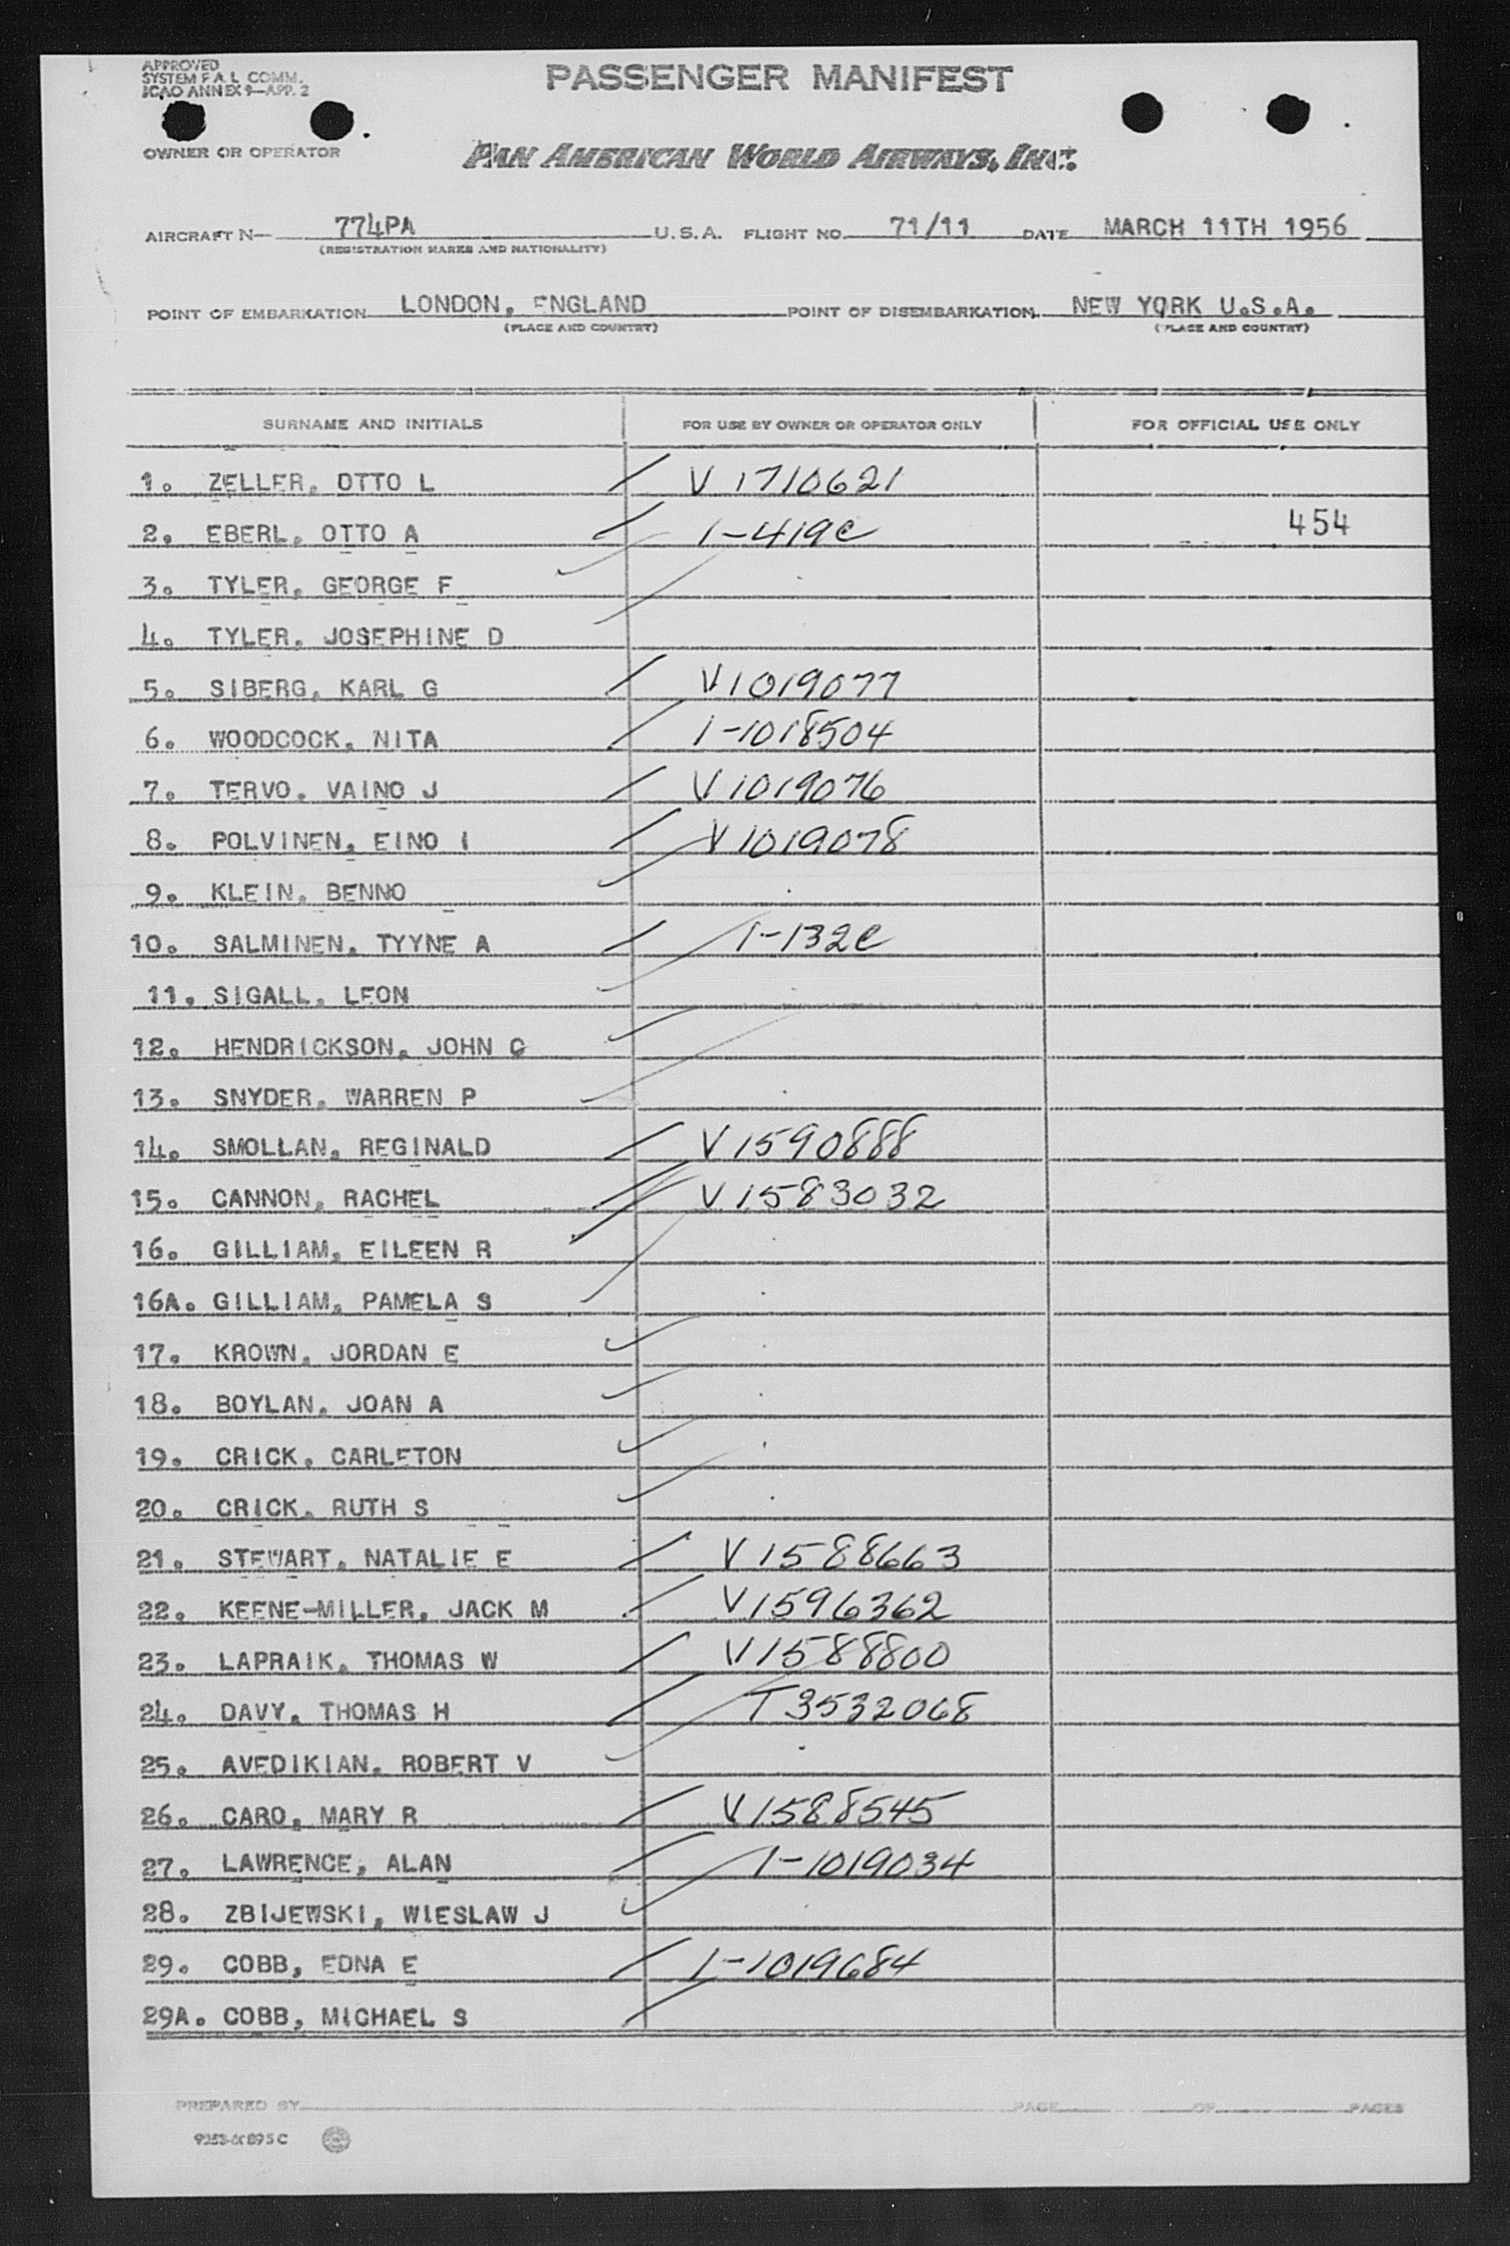 APPROVED
SYSTEM F.A.L. COMM.
ICAO ANNEX 9—APP. 2
PASSENGER MANIFEST
OWNER OR OPERATOR
PAN AMERICAN WORLD AIRWAYS, INC.
AIRCRAFT N— 774PA U.S.A. FLIGHT NO. 71/11 DATE MARCH 11TH 1956
(REGISTRATION MARKS AND NATIONALITY)
POINT OF EMBARKATION LONDON, ENGLAND POINT OF DISEMBARKATION NEW YORK U.S.A.
(PLACE AND COUNTRY) (PLACE AND COUNTRY)
SURNAME AND INITIALS FOR USE BY OWNER OR OPERATOR ONLY FOR OFFICIAL USE ONLY
1. ZELLER, OTTO L V 1710621
2. EBERL, OTTO A 1-419C 454
3. TYLER, GEORGE F
4. TYLER, JOSEPHINE D
5. SIBERG, KARL G V1019077
6. WOODCOCK, NITA 1-1018504
7. TERVO, VAINO J V1019076
8. POLVINEN, EINO I V1019078
9. KLEIN, BENNO
10. SALMINEN, TYYNE A 1-132C
11. SIGALL, LEON
12. HENDRICKSON, JOHN C
13. SNYDER, WARREN P
14. SMOLLAN, REGINALD V1590888
15. CANNON, RACHEL V1583032
16. GILLIAM, EILEEN R
16A. GILLIAM, PAMELA S
17. KROWN, JORDAN E
18. BOYLAN, JOAN A
19. CRICK, CARLETON
20. CRICK, RUTH S
21. STEWART, NATALIE E V1588663
22. KEENE-MILLER, JACK M V1596362
23. LAPRAIK, THOMAS W V1588800
24. DAVY, THOMAS H T3532068
25. AVEDIKIAN, ROBERT V
26. CARO, MARY R V1588545
27. LAWRENCE, ALAN 1-1019034
28. ZBIJEWSKI, WIESLAW J
29. COBB, EDNA E 1-1019684
29A. COBB, MICHAEL S
PREPARED BY PAGE OF PAGES